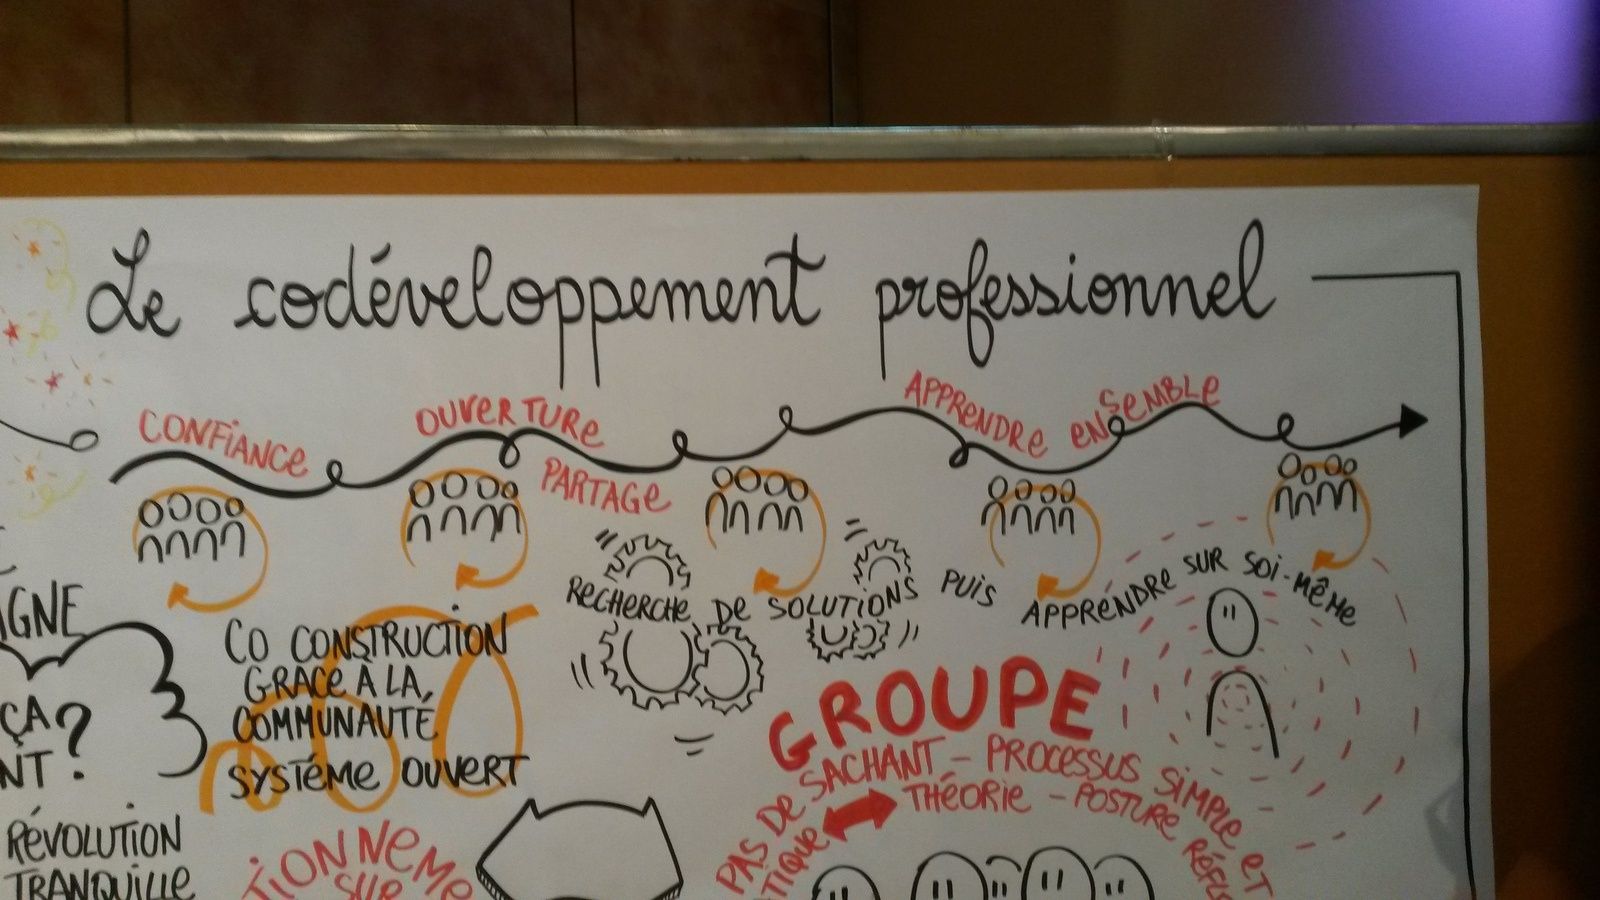 Le codéveloppement professionnel
CONFIANCE
OUVERTURE
PARTAGE
APPRENDRE ENSEMBLE
RECHERCHE DE SOLUTIONS PUIS APPRENDRE SUR SOI-MÊME
CO CONSTRUCTION
GRACE À LA
COMMUNAUTÉ
SYSTÈME OUVERT
ÇA
RÉVOLUTION
TRANQUILLE
SUR
GROUPE
PAS DE SACHANT - PROCESSUS SIMPLE ET
THÉORIE - POSTURE